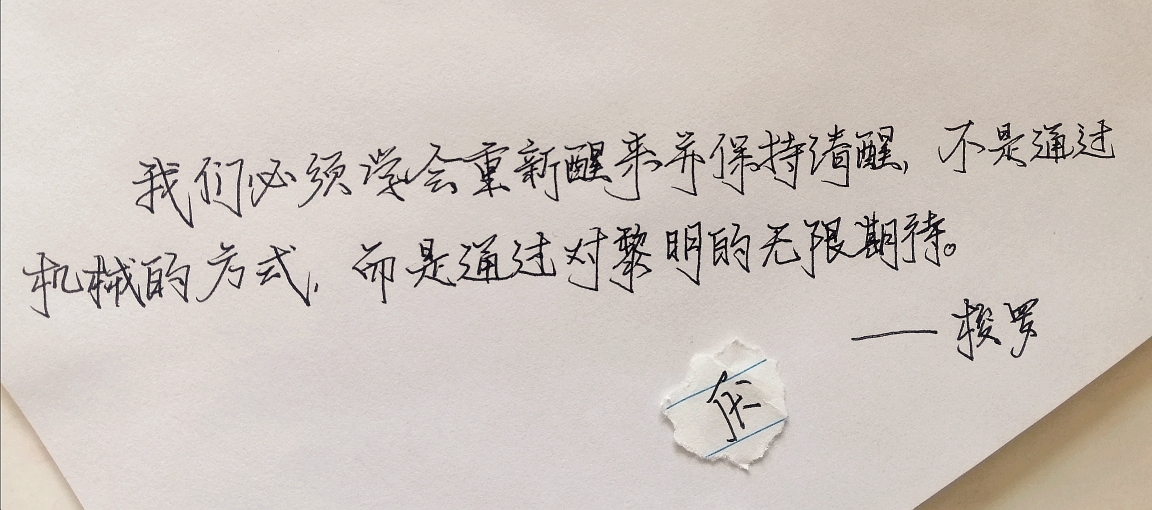 我们必须学会重新醒来并保持清醒，不是通过
机械的方式，而是通过对黎明的无限期待。
——梭罗